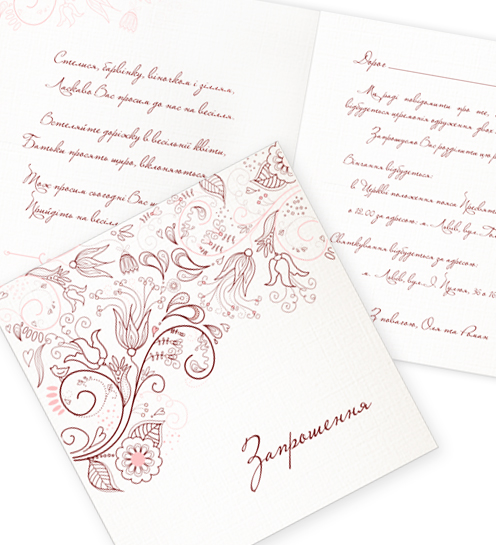 Стелися, барвінку, віночком і зіллям,
Ласкаво Вас просим до нас на весілля.
Встеляйте доріжку в весільні квіти,
Батьки просять щиро, вклоняються
Тож просим сьогодні Вас
Прийдіть на весілля
Дорог
Ми раді повідомити про те,
відбудеться церемонія одруження двох
Запрошуємо Вас розділити цю
Вінчання відбудеться:
в Церкві положення пояса
о 12.00 за адресою: м. Львів, вул.
Святкування відбудеться за адресою:
м. Львів, вул.
З повагою, Оля та Роман
Запрошення